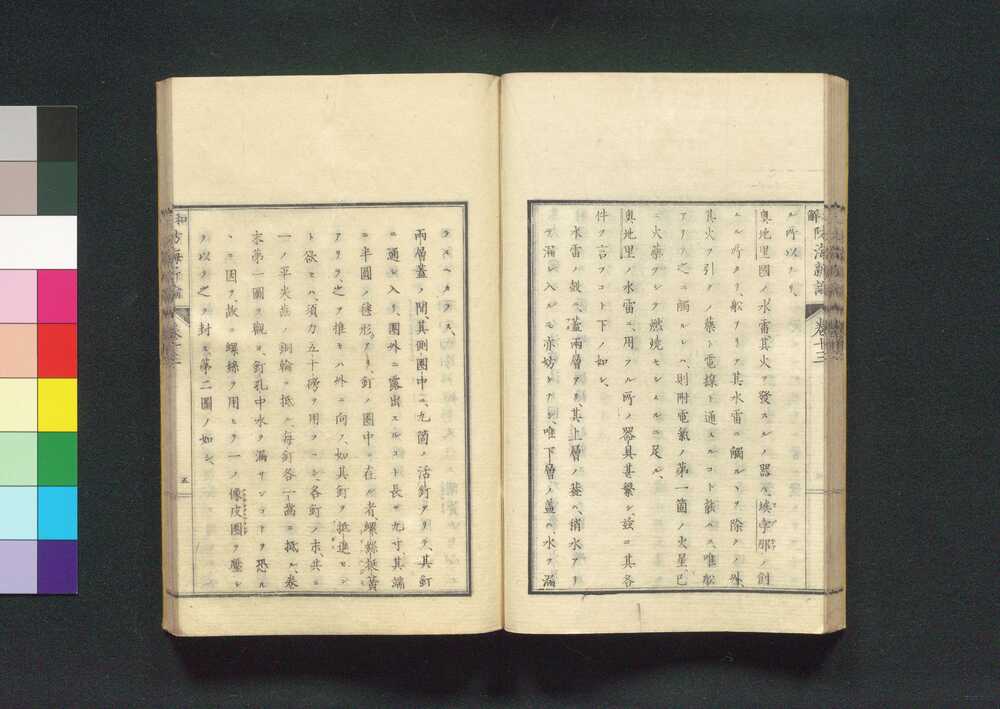 解 防海新論 卷十三
ル所以ナリ、
奧地里國ノ水雷其火ヲ發スルノ器ハ、埃孛那ノ創
ムル所タリ、船ヲリテ其水雷ニ觸ルヽヲ除クノ外、
其火ヲ引クノ藥ト電線ト通スルコト能ハス、唯船
アリテ之ニ觸ルレハ、則附電氣ノ第一箇ノ火星、已
ニ火藥ヲシテ燃燒セシムルニ足ル、
奧地里ノ水雷ニ、用フル所ノ器具甚繁シ、玆ニ其各
件ヲ言フコト下ノ如シ、
水雷ノ殼ニ、蓋兩層アリ、其上層ノ蓋ハ、稍水アリ
テ漏シ入ルモ亦妨ケナシ、唯下層ノ蓋ハ、水ヲ漏
ラスヘカラス、
兩層蓋ノ間、其側圈中ニ、九箇ノ活釘アリテ、其釘
ニ通シ入リ、圈外ニ露出スルコト長サ九寸、其端
ニ半圓ノ毬形アリ、釘ノ圈中ニ在ル者、螺絲
アリテ之ヲ推セハ外ニ向フ、如其釘ヲ抵進セン
ト欲セハ、須力五十磅ヲ用フヘシ、各釘ノ末、共ニ
一ノ平尖ノ銅輪ヲ抵ス、每釘各一齒ニ抵ル、卷
末第一圖ヲ觀ヨ、釘孔中水ヲ漏サンコトヲ恐ル
ヽニ因テ、故ニ螺絲ヲ用ヒテ一ノ像皮圈ヲ壓シ
テ以テ之ヲ封ス、第二圖ノ如シ、
五